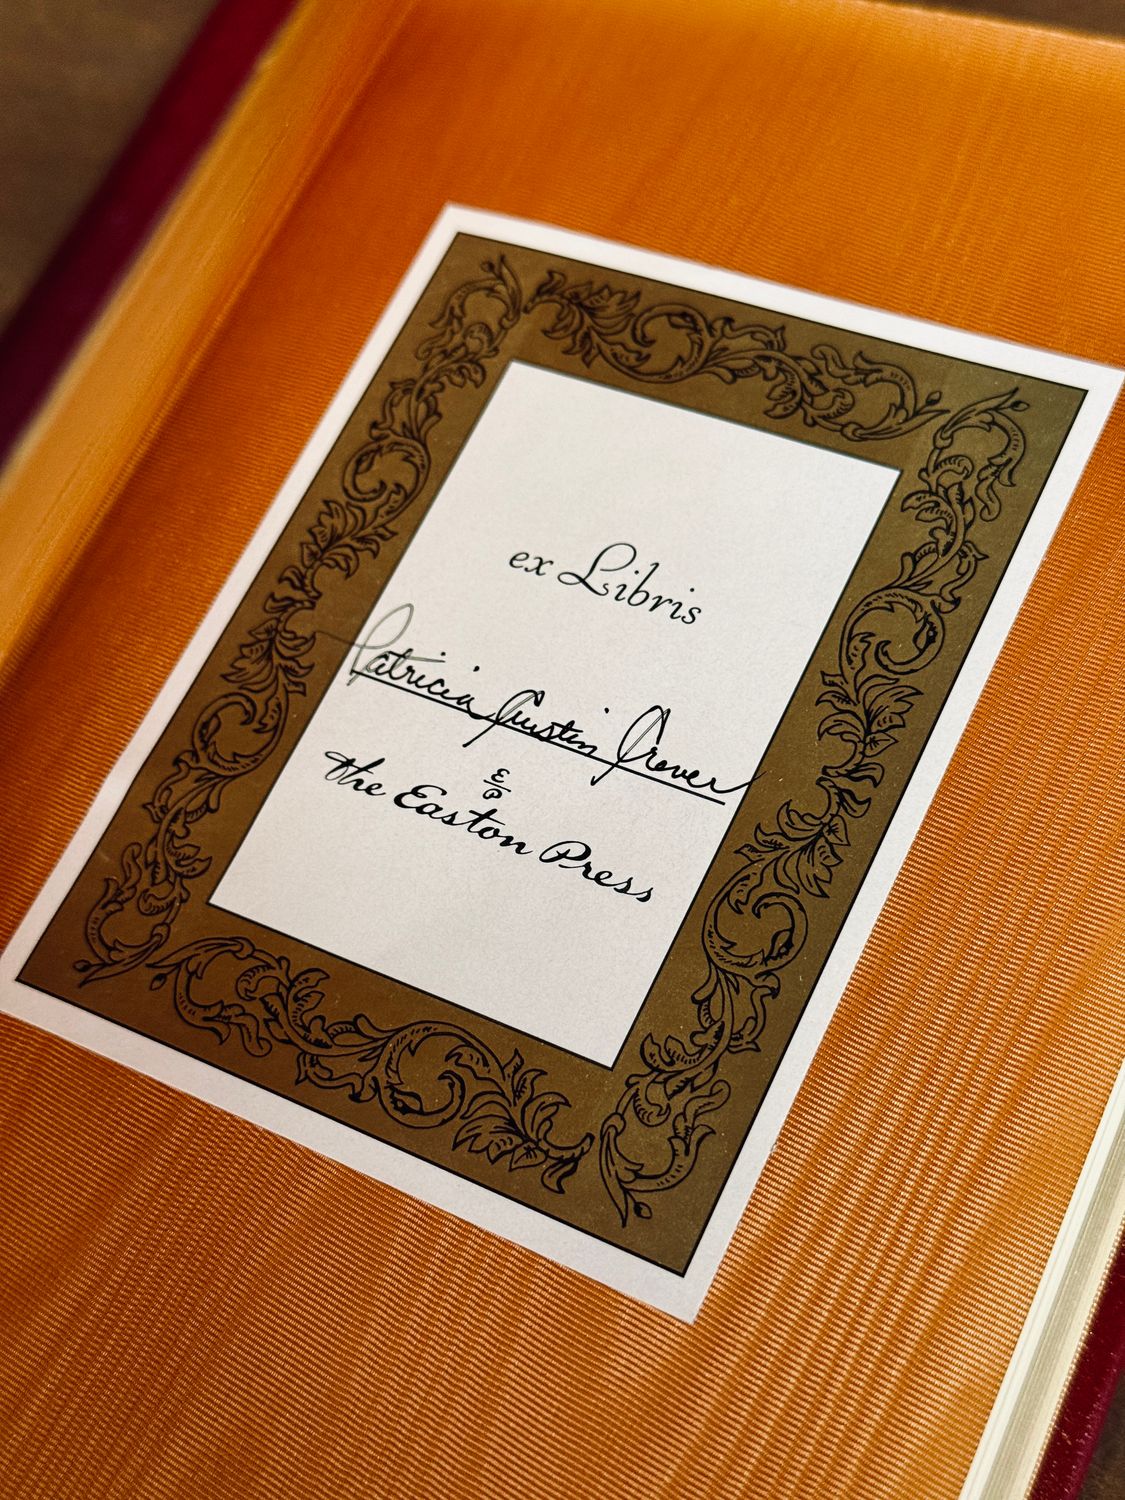 ex Libris
Patricia Austin Grover
E
P
the Easton Press